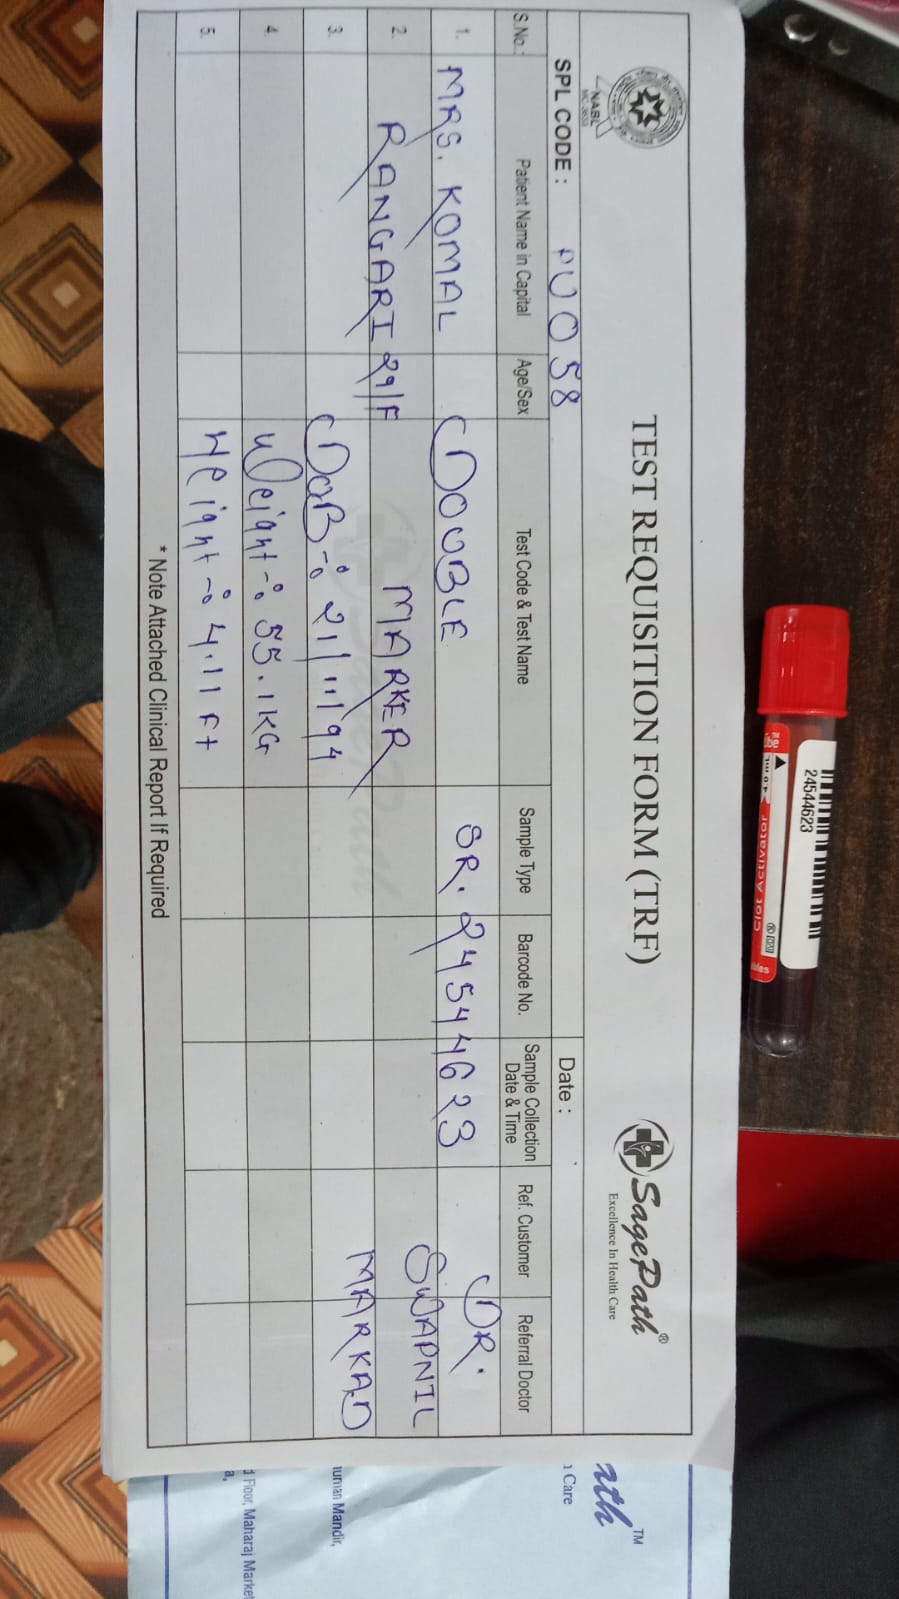 TEST REQUISITION FORM (TRF)
NABL
SagePath®
Excellence In Health Care
SPL CODE : PU058
Date :
S.No.: Patient Name in Capital Age/Sex Test Code & Test Name Sample Type Barcode No. Sample Collection Date & Time Ref. Customer Referral Doctor
1. MRS. KOMAL DOUBLE SR. 24544623 DR.
2. RANGARI 29/F MARKER SWAPNIL
3. DOB-: 21/11/94 MARKAD
4. Weight-: 55.1KG
5. Height-: 4.11 Ft
* Note Attached Clinical Report If Required
24544623
Clot Activator
ath™
Care
uman Mandir,
d Floor, Maharaj Market
a,